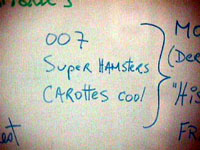 007
SUPER HAMSTERS
CAROTTES COOL
MO
(Dee
"His
FR
est